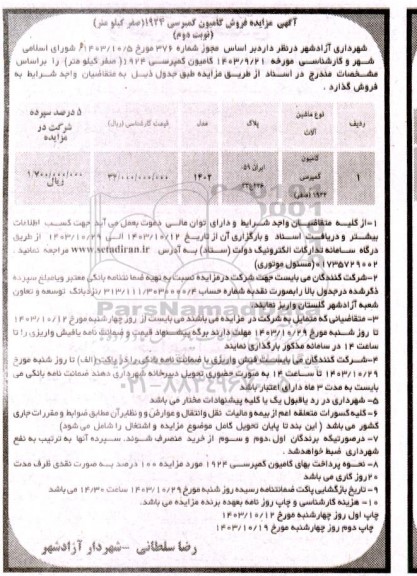 آگهی مزایده فروش کامیون کمپرسی ۱۹۲۴(صفر کیلو متر)
(نوبت دوم)
شهرداری آزادشهر درنظر دارد بر اساس مجوز شماره ۳۷۶ مورخ ۱۴۰۳/۱۰/۵ شورای اسلامی
شهر و کارشناسی مورخه ۱۴۰۳/۹/۲۱ کامیون کمپرسی ۱۹۲۴( صفر کیلو متر) را براساس
مشخصات مندرج در اسناد از طریق مزایده طبق جدول ذیل به متقاضیان واجد شرایط به
فروش گذارد .
ردیف نوع ماشین آلات پلاک مدل قیمت کارشناسی (ریال) ۵ درصد سپرده شرکت در مزایده
۱ کامیون کمپرسی ۱۹۲۴ (صفر) ایران ۵۹ ۱۴۰۲ ۳۴/۰۰۰/۰۰۰/۰۰۰ ۱/۷۰۰/۰۰۰/۰۰۰ ریال
۱-از کلیه متقاضیان واجد شرایط و دارای توان مالی دعوت بعمل می آید جهت کسب اطلاعات
بیشتر و دریافت اسناد و بارگزاری آن از تاریخ ۱۴۰۳/۱۰/۱۲ الی ۱۴۰۳/۱۰/۲۹ از طریق
درگاه سامانه تدارکات الکترونیک دولت (ستاد) به آدرس www.setadiran.ir مراجعه نمایید .
۰۱۷۳۵۷۲۹۰۰۲ (مسئول موتوری)
۲-شرکت کنندگان می بایست جهت شرکت درمزایده نسبت به تهیه ضمانتنامه بانکی معتبر ویامبلغ سپرده
ذکرشده درجدول بالا رابصورت نقدبه شماره حساب نزدبانک توسعه و تعاون
شعبه آزادشهر گلستان واریز نمایند.
۳- متقاضیانی که متمایل به شرکت در مزایده می باشند می بایست از روز چهارشنبه مورخ ۱۴۰۳/۱۰/۱۲
تا روز شنبه مورخ ۱۴۰۳/۱۰/۲۹ مهلت دارند برگه پیشنهاد قیمت و ضمانت نامه یافیش واریزی را تا
ساعت ۱۴ در سامانه مذکور بارگذاری نمایند
۴-شرکت کنندگان می بایست فیش واریزی یا ضمانت نامه بانکی را در پاکت (الف) تا روز شنبه مورخ
۱۴۰۳/۱۰/۲۹ تا ساعت ۱۴ به صورت حضوری تحویل دبیرخانه شهرداری دهند ضمانت نامه بانکی می
بایست به مدت ۳ ماه دارای اعتبار باشد
۵- شهرداری در رد یاقبول یک یا کلیه پیشنهادات مختار می باشد
۶-کلیه کسورات متعلقه اعم از بیمه و مالیات نقل وانتقال و عوارض و نظایر آن مطابق ضوابط و مقررات جاری
کشور می باشد ( این بند تا پایان تحویل کامل موضوع مزایده و اشتغال را شامل می شود)
۷- درصورتیکه برندگان اول ،دوم و سوم از خرید منصرف شوند. سپرده آنها به ترتیب به نفع
شهرداری ضبط خواهدشد .
۸- نحوه پرداخت بهای کامیون کمپرسی ۱۹۲۴ مورد مزایده ۱۰۰ درصد به صورت نقدی ظرف مدت
۲۰روز کاری می باشد
۹-تاریخ بازگشایی پاکت ضمانتنامه رسیده روز شنبه مورخ ۱۴۰۳/۱۰/۲۹ ساعت ۱۴/۳۰ می باشد
۱۰- هزینه کارشناسی و چاپ روز نامه بعهده برنده مزایده می باشد.
چاپ اول روز چهارشنبه مورخ ۱۴۰۳/۱۰/۱۲
چاپ دوم روز چهارشنبه مورخ ۱۴۰۳/۱۰/۱۹
رضا سلطانی -شهردار آزادشهر